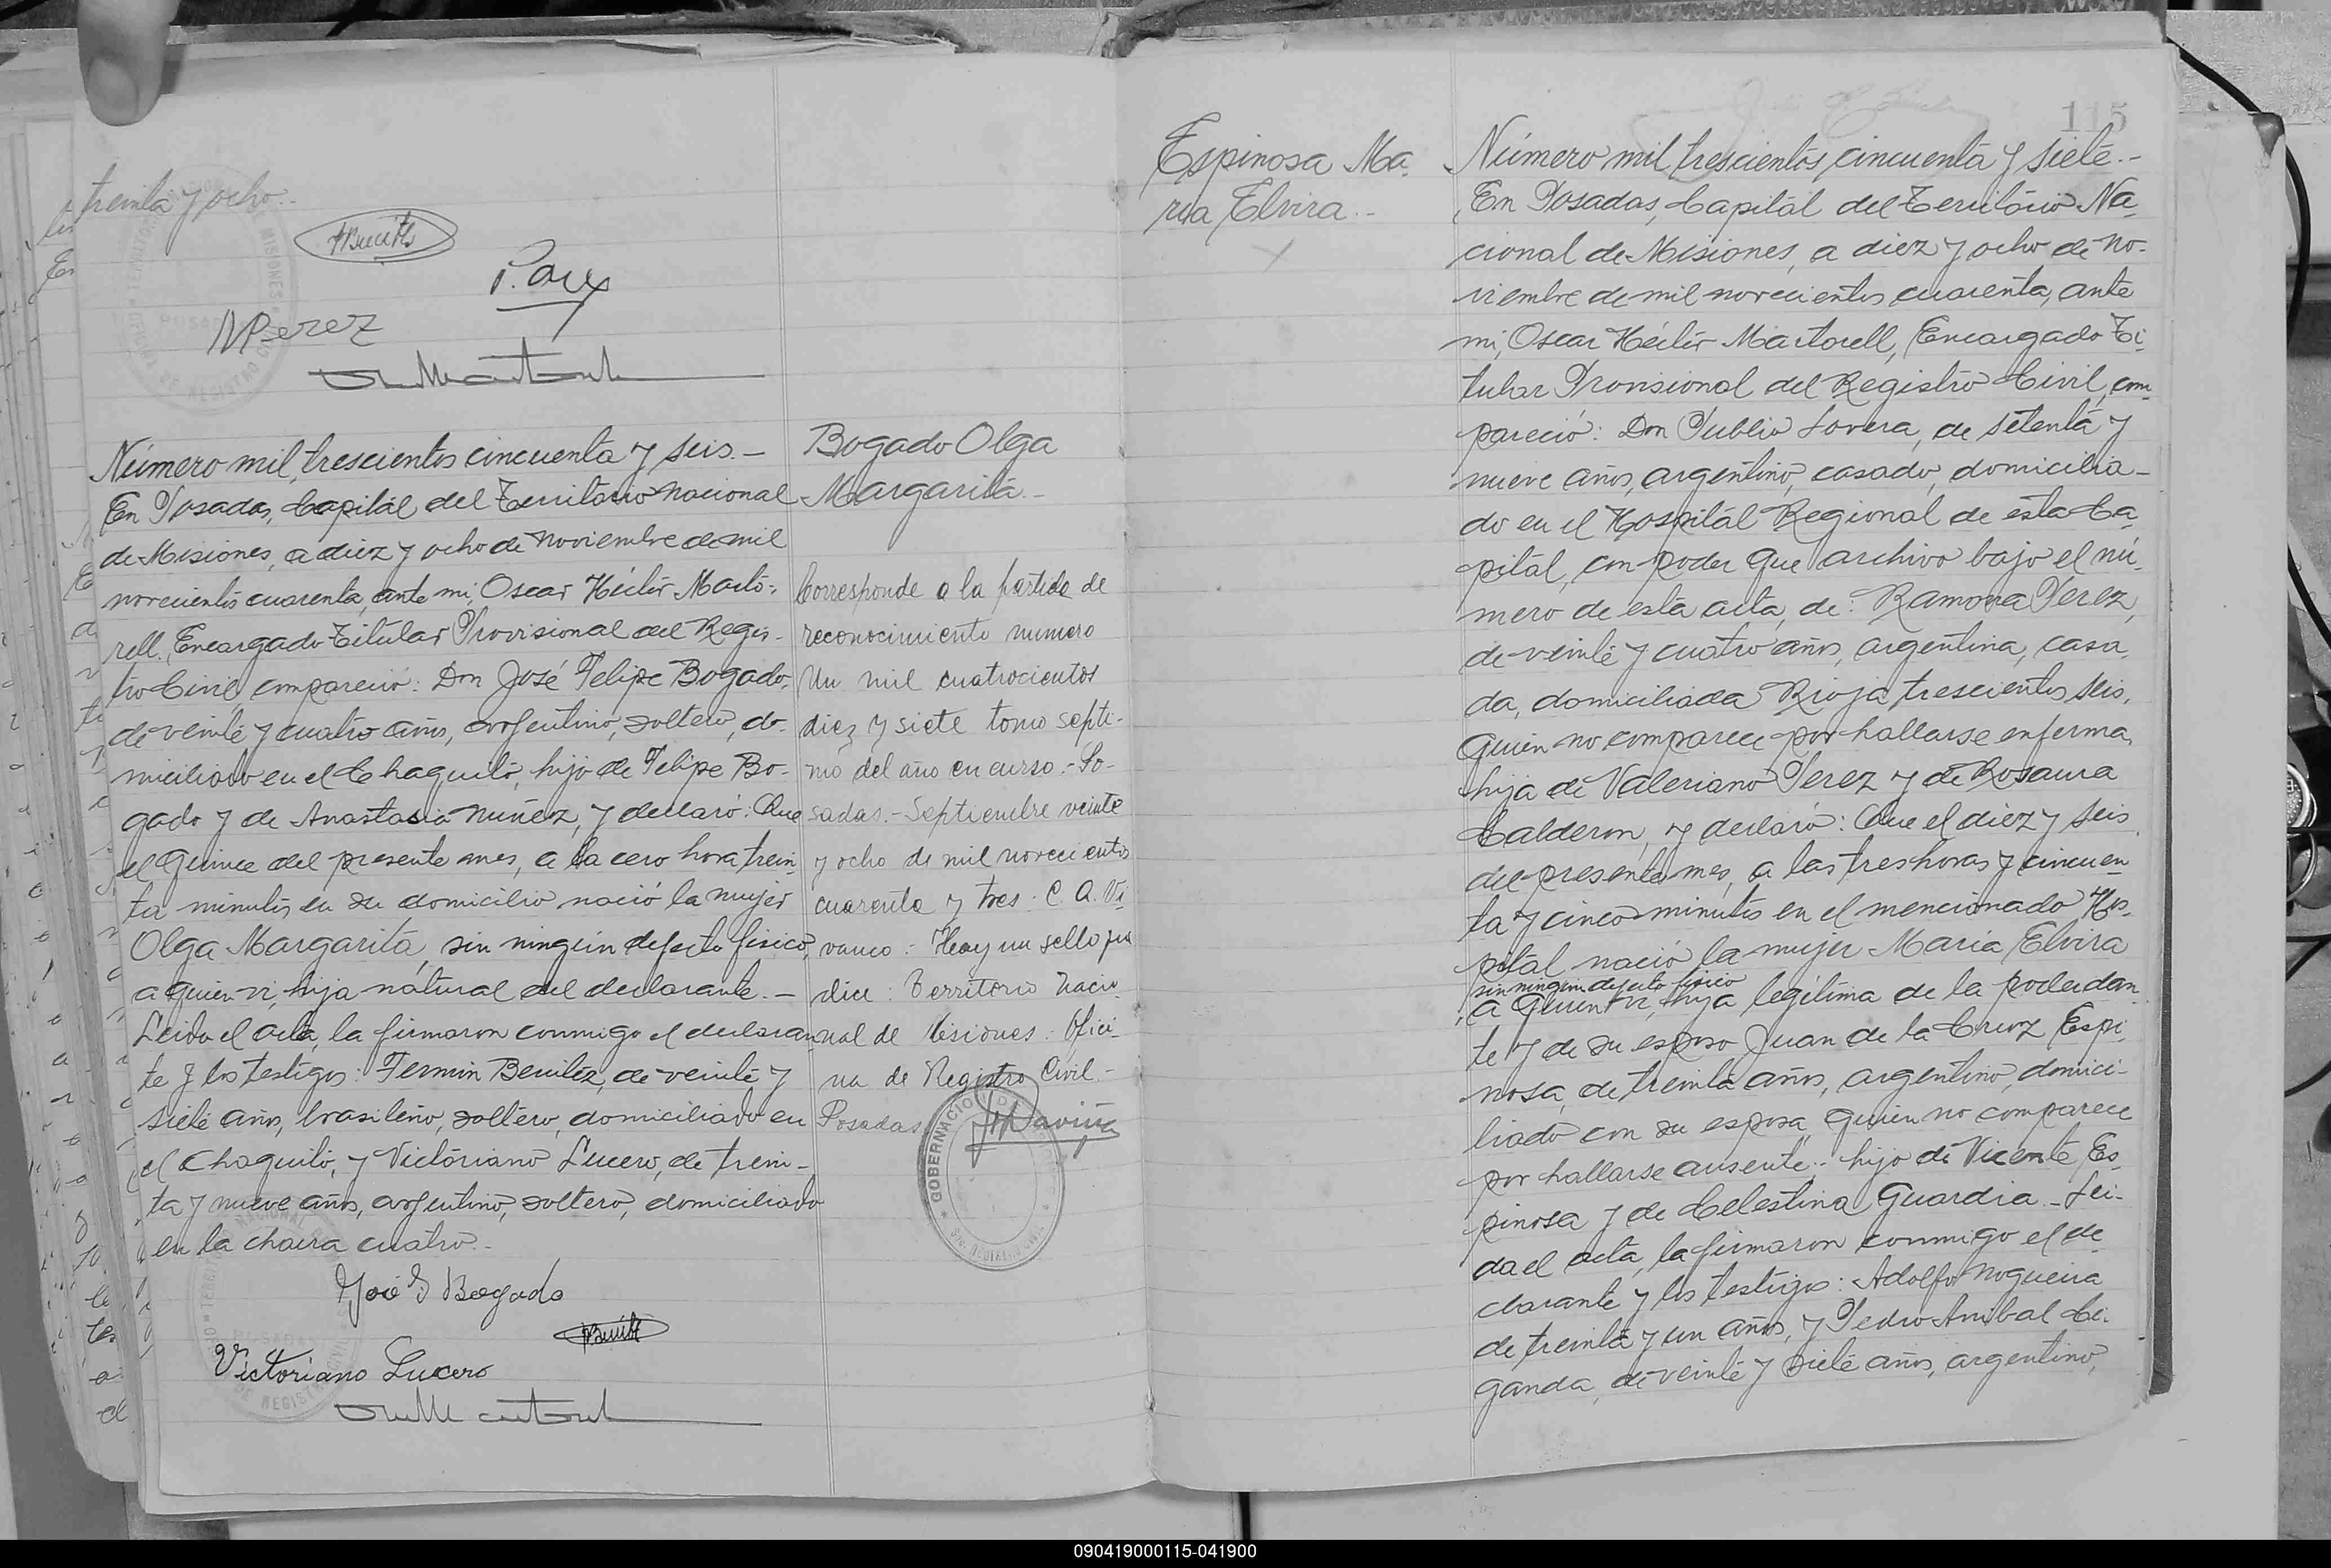 treinta y ocho.-
NPerez
Número mil trescientos cincuenta y seis.-
En Posadas, Capitál del Territorio Nacional
de Misiones, a diez y ocho de Noviembre de mil
novecientos cuarenta, ante mi, Oscar Héctor Marto-
rell, Encargado Titular Provisional del Regis-
tro Civil compareció: Don José Felipe Bogado,
de veinte y cuatro años, argentino, soltero, do-
miciliado en el Chaquito, hijo de Felipe Bo-
gado y de Anastasia Nuñez, y declaró: Que
el quince del presente mes, a la cero hora trein-
ta minutos en su domicilio nació la mujer
Olga Margarita, sin ningún defecto fisico,
a quien vi, hija natural del declarante.-
Leida el acta, la firmaron conmigo el declaran-
te y los testigos: Fermin Benitez, de veinte y
siete años, brasileño, soltero, domiciliado en
el Chaquito, y Victoriano Lucero, de trein-
ta y nueve años, argentino, soltero, domiciliado
en la chacra cuatro.-
José F Bogado
Victoriano Lucero
Bogado Olga
Margarita.-
Corresponde a la partida de
reconocimiento numero
Un mil cuatrocientos
diez y siete tomo septi-
mo del año en curso.- Po-
sadas.- Septiembre veinte
y ocho de mil novecientos
cuarenta y tres. C. A. Vi-
vanco.- Hay un sello que
dice: Territorio Nacio-
nal de Misiones. Ofici-
na de Registro Civil.-
Posadas.
GOBERNACION
Espinosa Ma-
ria Elvira.-
115
Número mil trescientos cincuenta y siete.-
En Posadas, Capitál del Territorio Na-
cional de Misiones, a diez y ocho de No-
viembre de mil novecientos cuarenta, ante
mi, Oscar Héctor Martorell, Encargado Ti-
tular Provisional del Registro Civil, com-
pareció: Don Publio Lovera, de setenta y
nueve años, argentino, casado, domicilia-
do en el Hospitál Regional de esta Ca-
pitál, con poder que archivo bajo el nú-
mero de esta acta, de: Ramona Perez,
de veinte y cuatro años, argentina, casa-
da, domiciliada Rioja trescientos seis,
quien no comparece por hallarse enferma,
hija de Valeriano Perez y de Rosaura
Calderon, y declaró: Que el diez y seis
del presente mes, a las tres horas y cincuen-
ta y cinco minutos en el mencionado Hos-
pitál nació la mujer Maria Elvira
sin ningun defecto fisico
a quien vi, hija legítima de la poderdan-
te y de su esposo Juan de la Cruz Espi-
nosa, de treinta años, argentino, domici-
liado con su esposa quien no comparece
por hallarse ausente.- hijo de Vicente Es-
pinosa y de Celestina Guardia.- Lei-
da el acta, la firmaron conmigo el de-
clarante y los testigos: Adolfo Nogueira
de treinta y un años, y Pedro Anibal Ci-
ganda, de veinte y siete años, argentino,
090419000115-041900